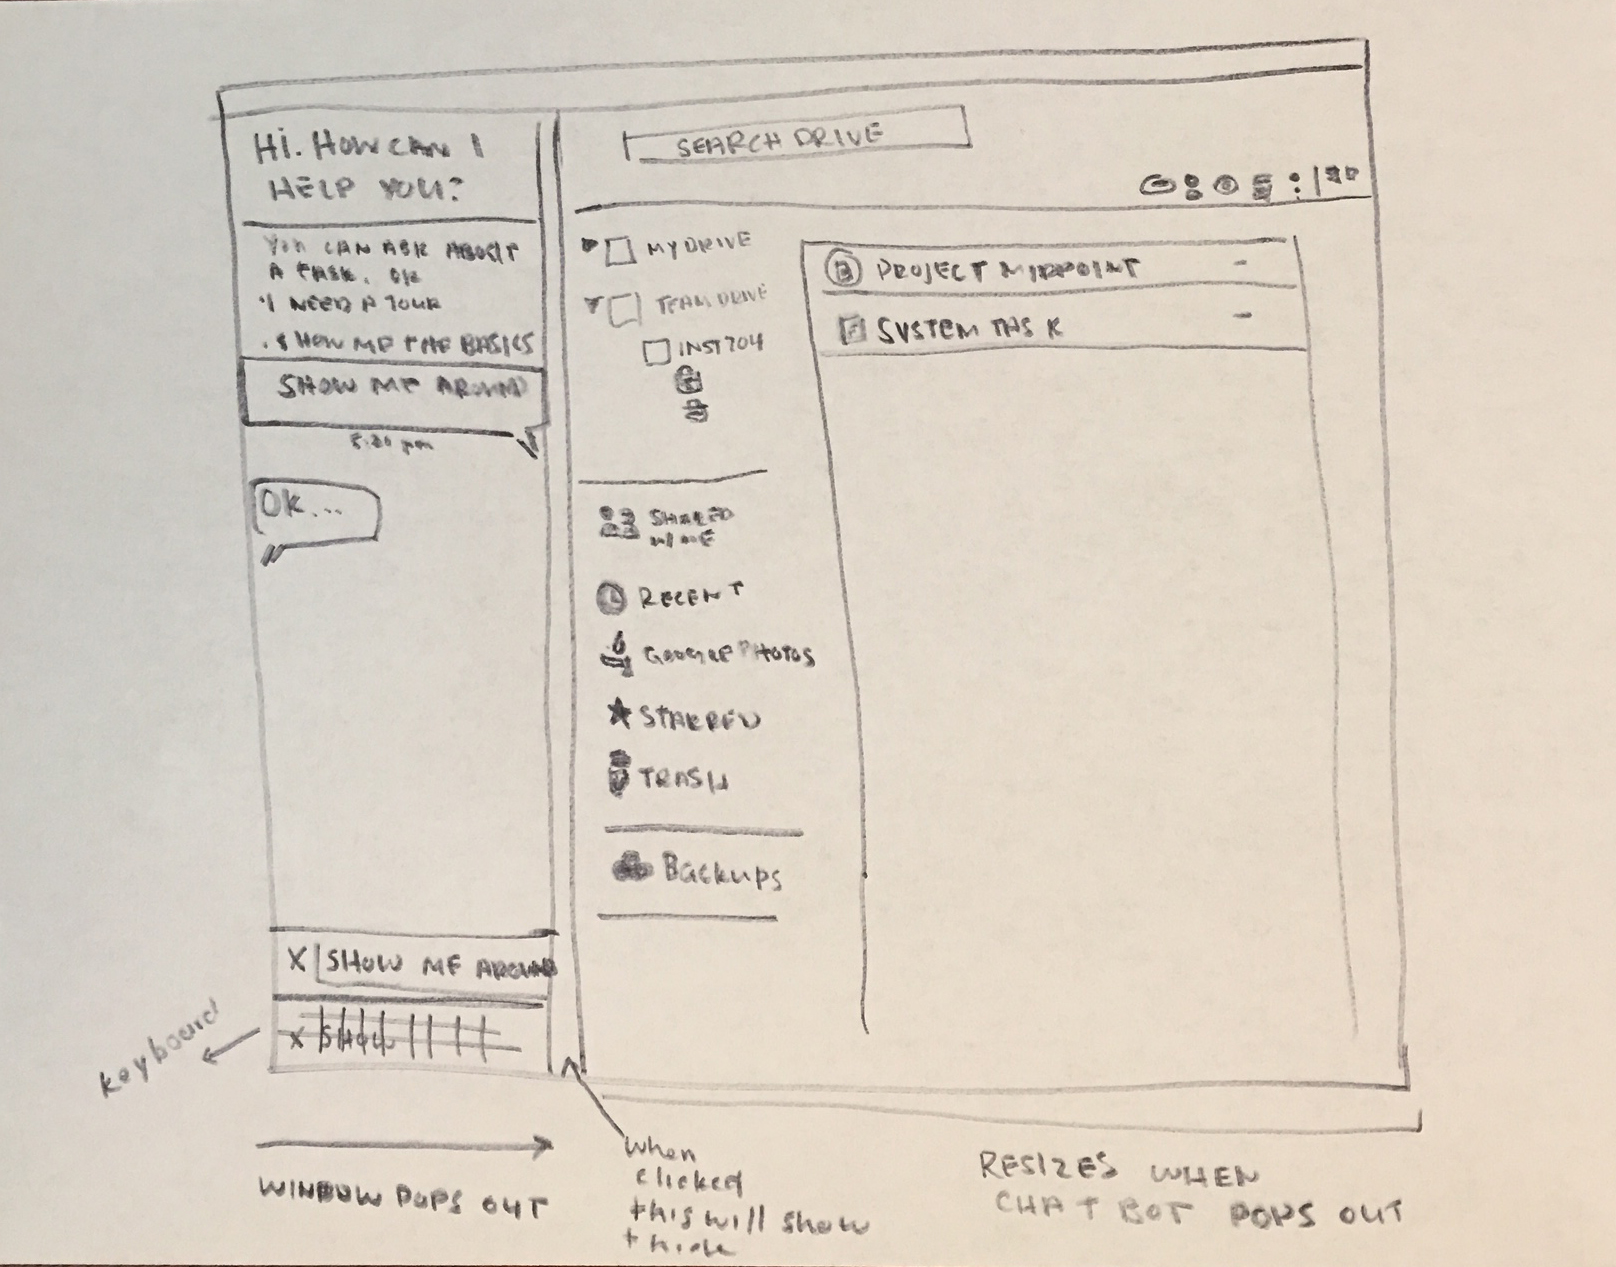 Hi. How can I
HELP YOU?
YOU CAN ASK ABOUT
A TASK. OR
I NEED A TOUR
. SHOW ME THE BASICS
SHOW ME AROUND
5:20 pm
OK...
X SHOW ME AROUND
X SHOW
SEARCH DRIVE
MY DRIVE
TEAM DRIVE
INST704
SHARED
RECENT
GOOGLE PHOTOS
STARRED
TRASH
Backups
PROJECT MIDPOINT -
SYSTEM TASK -
keyboard
WINDOW POPS OUT
when
clicked
this will show
+ hide
RESIZES WHEN
CHAT BOT POPS OUT